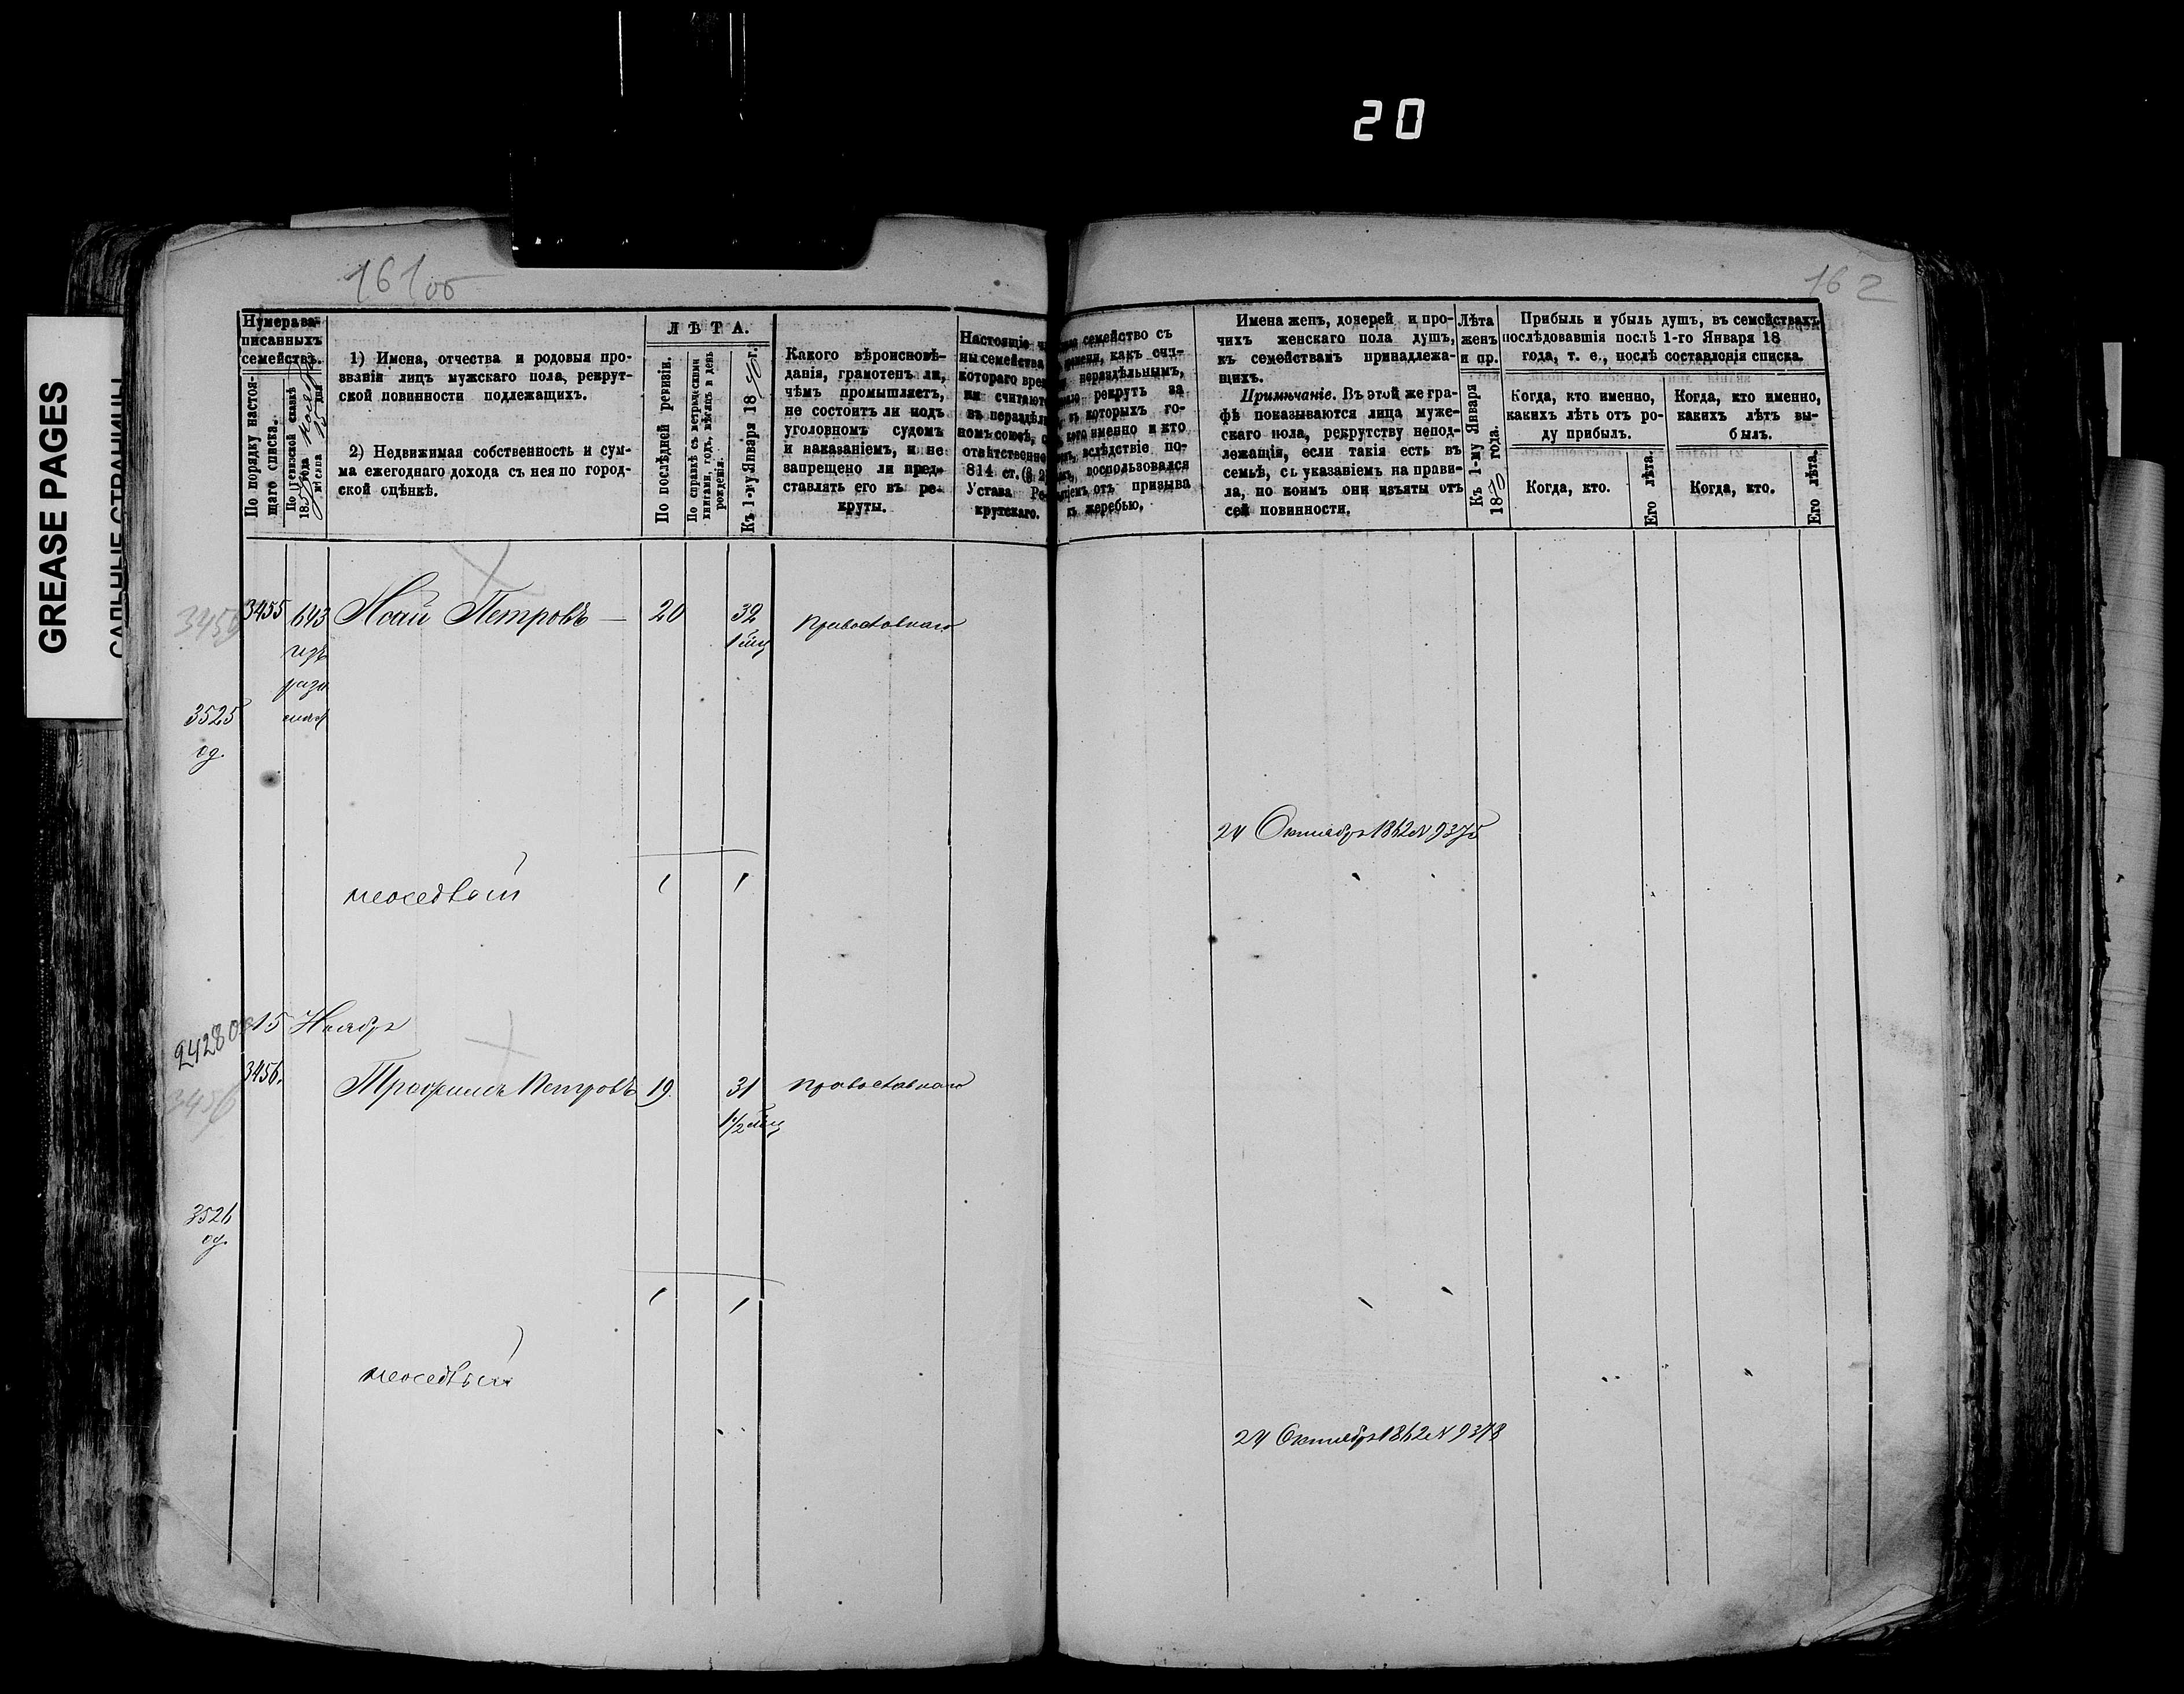 20
GREASE PAGES
161 об
162
Нумера за-
писанныхъ
семействъ.
По порядку настоя-
щаго списка.
По ревизской сказкѣ
18 года
мѣсяца 15 дня
1) Имена, отчества и родовыя про-
званія лицъ мужскаго пола, рекрут-
ской повинности подлежащихъ.
2) Недвижимая собственность и сум-
ма ежегоднаго дохода съ нея по город-
ской оцѣнкѣ.
ЛѢТА.
По послѣдней ревизіи.
По справкѣ съ метрическими
книгами, годъ, мѣсяцъ и день
рожденія.
Къ 1-му Января 1870 г.
Какого вѣроисповѣ-
данія, грамотенъ ли,
чѣмъ промышляетъ,
не состоитъ ли подъ
уголовномъ судомъ
и наказаніемъ, и не
запрещено ли пред-
ставлять его въ ре-
круты.
Настоящіе
ны семейства
котораго вре
ни считают
въ нераздѣль
номъ союзѣ, с
отвѣтственно
814 ст. (§ 2
Устава Ре-
крутскаго.
семейство съ
времени, какъ счи-
нераздѣльнымъ,
рекрутъ за
въ которыхъ го-
кого именно и кто
вслѣдствіе по-
воспользовался
отъ призыва
къ жеребью.
Имена женъ, дочерей и про-
чихъ женскаго пола душъ,
къ семействамъ принадлежа-
щихъ.
Примѣчаніе. Въ этой же гра-
фѣ показываются лица муже-
скаго пола, рекрутству непод-
лежащія, если такія есть въ
семьѣ, съ указаніемъ на прави-
ла, по коимъ они изъяты отъ
сей повинности.
Лѣта
женъ
и пр.
Къ 1-му Января
1870 года.
Прибыль и убыль душъ, въ семействахъ
послѣдовавшія послѣ 1-го Января 18
года, т. е., послѣ составленія списка.
Когда, кто именно,
какихъ лѣтъ отъ ро-
ду прибылъ.
Когда, кто именно,
какихъ лѣтъ вы-
былъ.
Когда, кто.
Его лѣта.
Когда, кто.
Его лѣта.
3455 643 Исай Петровъ — 20 32 православнаго
1 мц
3525
од.
24 Октября 1862 N 9375
неоседлый 1 1
15 Ноябр
24280
3456. Трофимъ Петровъ 19. 31 православнаго
1 1/2 мц
3456
3526
од.
1 1
неоседлый
24 Октября 1862 N 9378